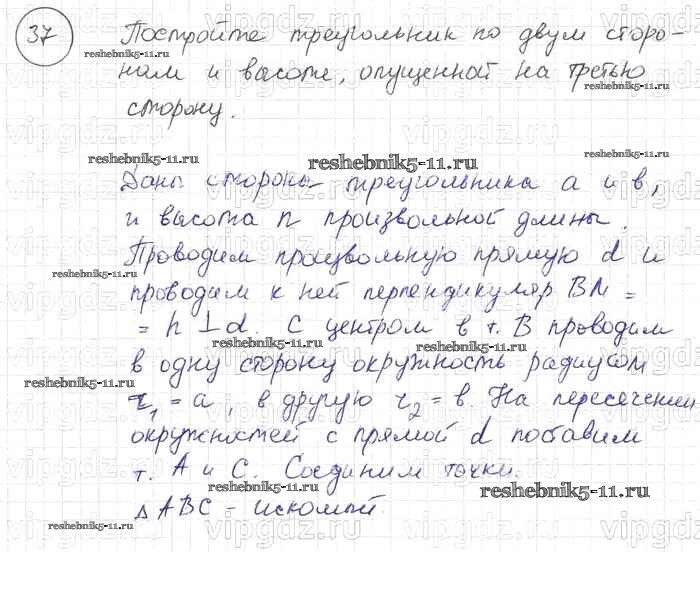 37 Постройте треугольник по двум сторо-
нам и высоте, опущенной на третью
сторону.
Даны стороны треугольника а и в,
и высота h произвольной длины.
Проводим произвольную прямую d и
проводим к ней перпендикуляр BM =
= h ⊥ d. С центром в т. B проводим
в одну сторону окружность радиусом
r₁ = a, в другую r₂ = в. На пересечении
окружностей с прямой d поставим
т. A и C. Соединим точки.
Δ ABC - искомый.
reshebnik5-11.ru
reshebnik5-11.ru
reshebnik5-11.ru
reshebnik5-11.ru
reshebnik5-11.ru
reshebnik5-11.ru
reshebnik5-11.ru
reshebnik5-11.ru
reshebnik5-11.ru
reshebnik5-11.ru
reshebnik5-11.ru
reshebnik5-11.ru
reshebnik5-11.ru
vipgdz.ru